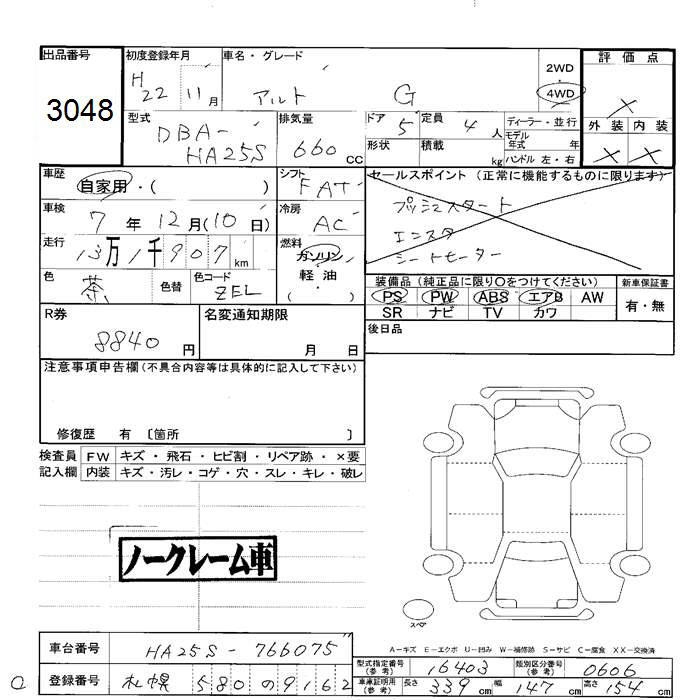 出品番号 初度登録年月 車名・グレード 評価点
3048 H 22 11月 アルト G 2WD 4WD ×
型式 DBA-HA25S 排気量 660cc ドア 5 定員 4人 ディーラー・並行 外装 内装
形状 積載 kg モデル年式 年 ハンドル 左・右 × ×
車歴 自家用・( ) シフト FAT セールスポイント (正常に機能するものに限ります)
車検 7年12月(10日) 冷房 AC プッシュスタート
走行 13万1千907km 燃料 ガソリン エンスタ
軽油 シートモーター
色 茶 色替 色コード ZEL ( ・ ) 装備品 (純正品に限り○をつけてください) 新車保証書
PS PW ABS エアB AW 有・無
R券 名変通知期限 SR ナビ TV カワ
8840円 月 日 後日品
注意事項申告欄(不具合内容等は具体的に記入して下さい)
修復歴 有 〔箇所 〕
検査員 FW キズ・飛石・ヒビ割・リペア跡・×要
記入欄 内装 キズ・汚レ・コゲ・穴・スレ・キレ・破レ
ノークレーム車
スペア
A-キズ E-エクボ U-凹み W-補修跡 S-サビ C-腐食 XX-交換済
車台番号 HA25S-766075
型式指定番号(参考) 16403 類別区分番号(参考) 0606
登録番号 札幌 580 の 9162
車庫証明用(参考) 長さ 339cm 幅 147cm 高さ 154cm